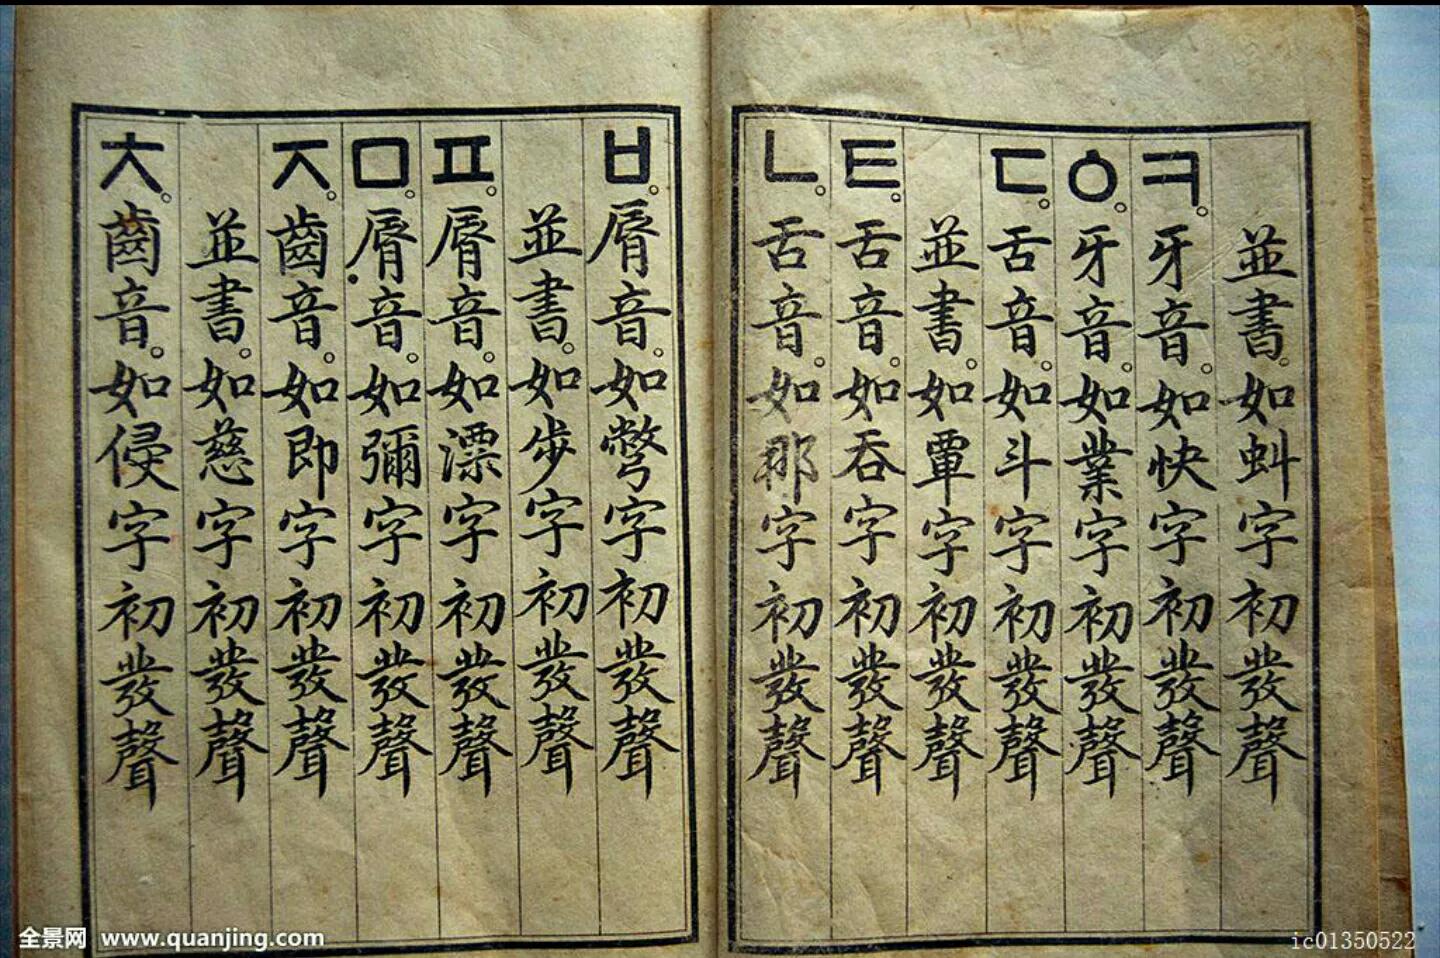 並書。如蚪字初發聲
ㅋ。牙音。如快字初發聲
ㆁ。牙音。如業字初發聲
ㄷ。舌音。如斗字初發聲
並書。如覃字初發聲
ㅌ。舌音。如呑字初發聲
ㄴ。舌音。如那字初發聲
ㅂ。脣音。如彆字初發聲
並書。如步字初發聲
ㅍ。脣音。如漂字初發聲
ㅁ。脣音。如彌字初發聲
ㅈ。齒音。如即字初發聲
並書。如慈字初發聲
ㅊ。齒音。如侵字初發聲
全景网 www.quanjing.com
ic01350522